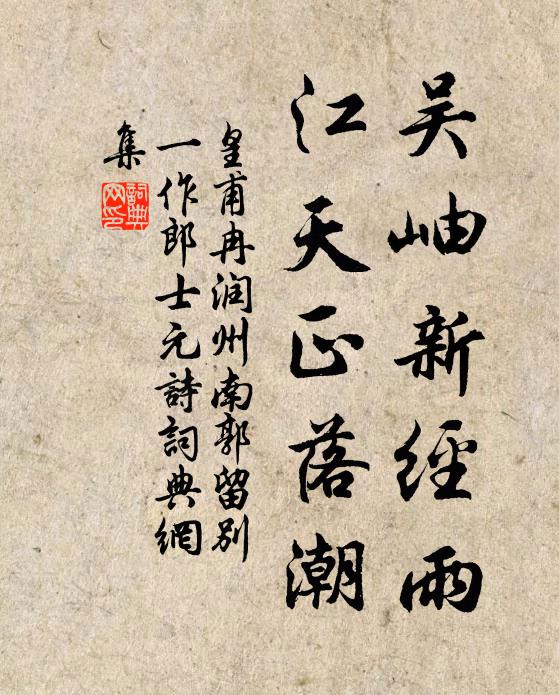 吴岫新經雨
江天正落潮
皇甫冉润州南郭留别
一作郎士元詩詞典網
集
詞典网印